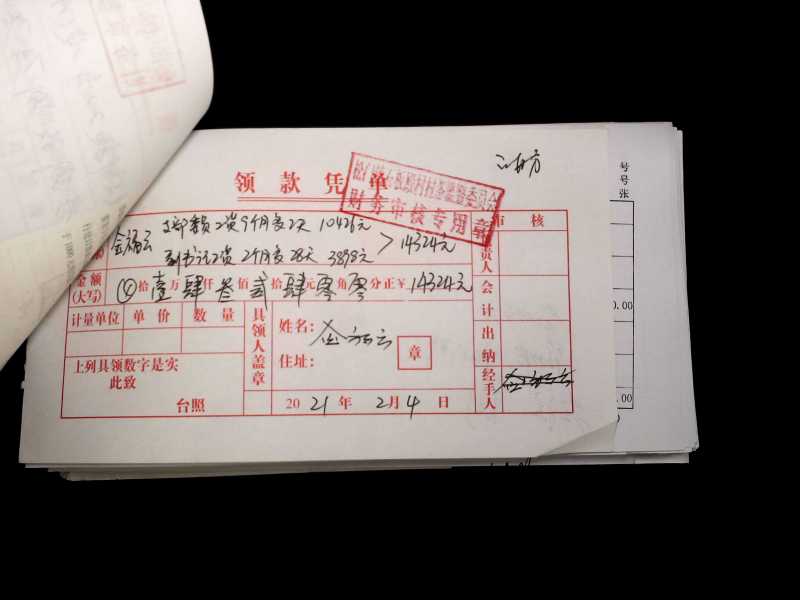 领款凭单
财务审核专用章
支部委员工资9个月零2天 10426元
副书记工资 2个月零28天 3898元
> 14324元
金额
(大写)
拾壹万肆仟叁佰贰拾肆元零角零分正¥ 14324元
计量单位 单价 数量
具领人盖章
姓名:
住址:
章
上列具领数字是实
此致
台照
2021年2月4日
审核
负责人
会计
出纳
经手人
号
号
张
0.00
.00